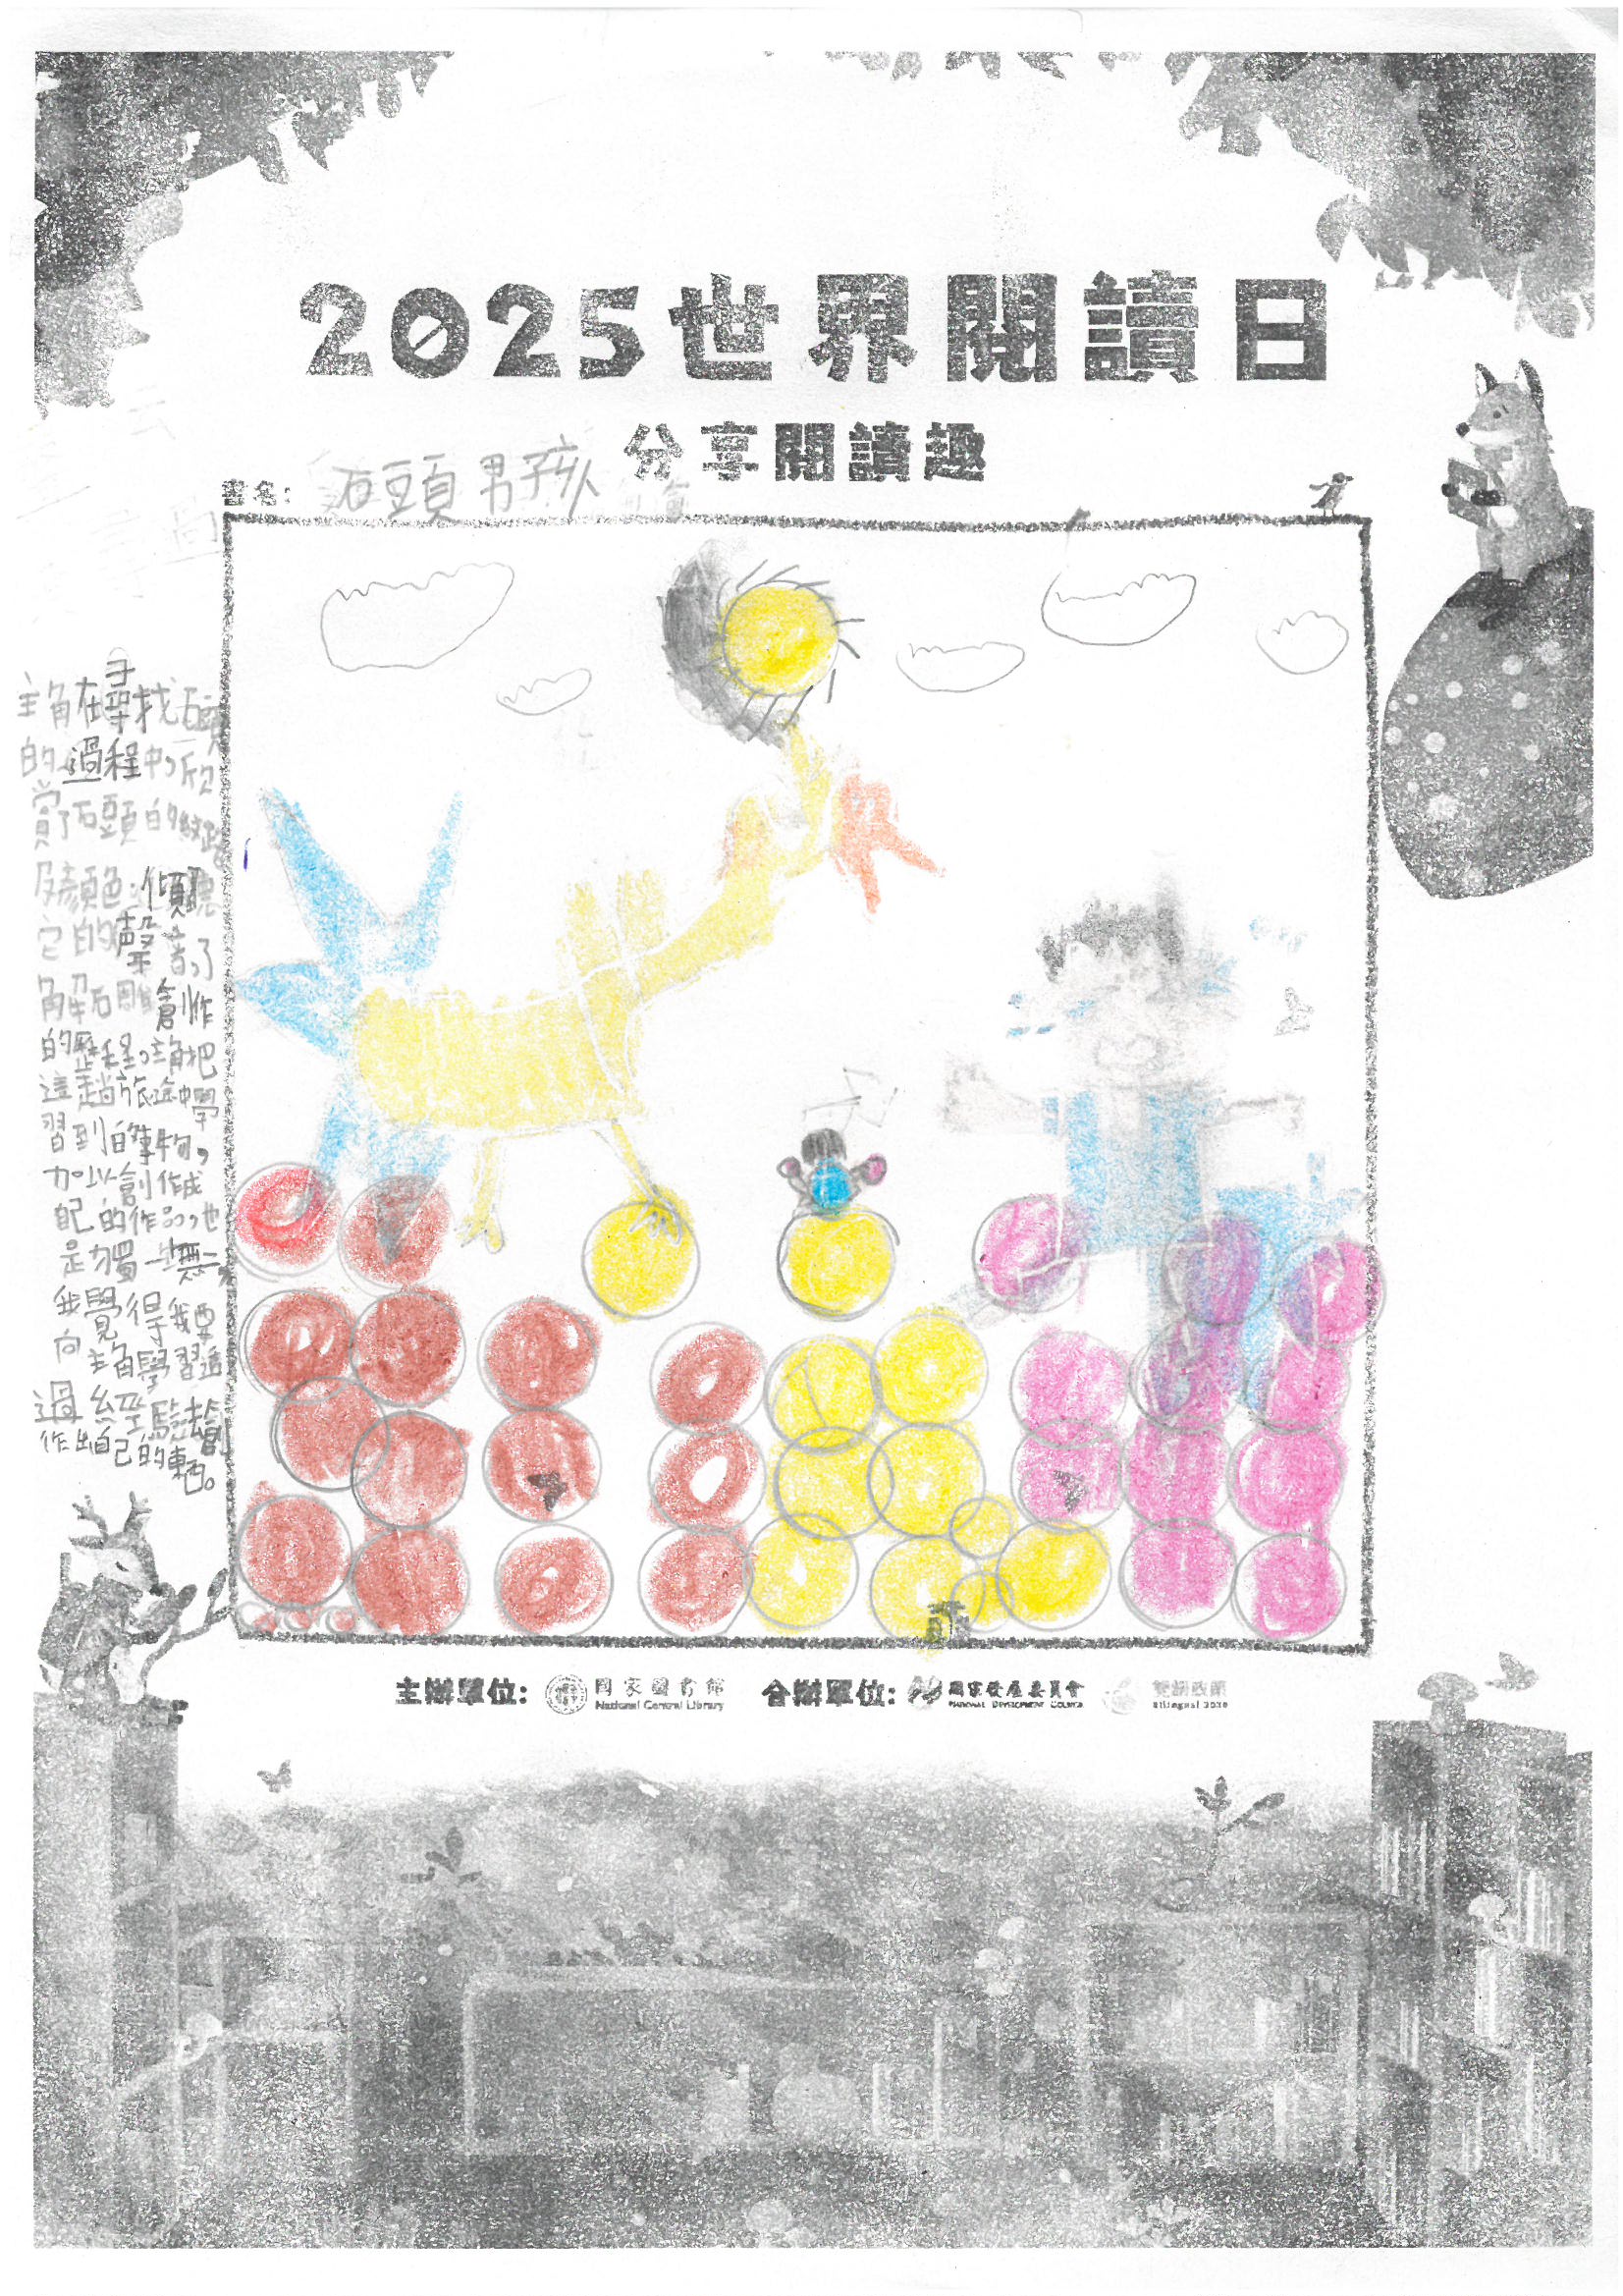 2025世界閱讀日
分享閱讀趣
書名: 石頭男孩
主角在尋找石頭
的過程中,欣
賞了石頭的紋路
及顏色,傾聽
它的聲音,了
解石雕創作
的歷程,主角把
這趟旅途中學
習到的事物,
加以創作成
自己的作品,也
是獨一無二,
我覺得我要
向主角學習透
過經驗去創
作出自己的東西。
主辦單位: 國家圖書館 National Central Library 合辦單位: 國家發展委員會 NATIONAL DEVELOPMENT COUNCIL 雙語政策 Bilingual 2030